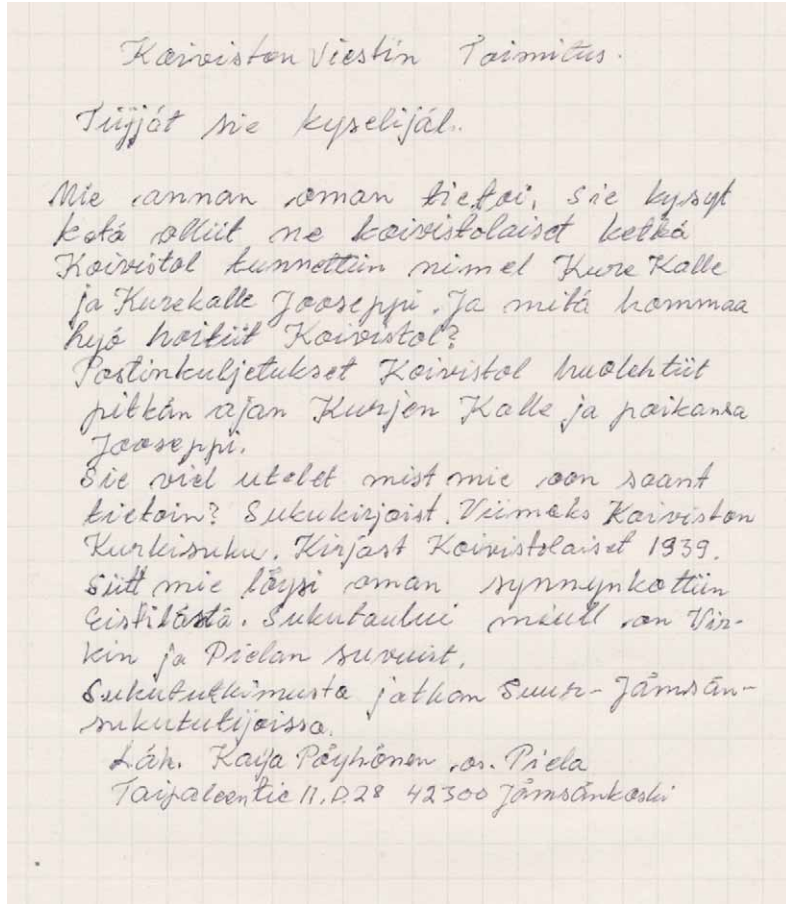 Koiviston Viestin Toimitus.
Tiijját sie kyselijäl..
Mie annan oman tietoi, sie kysyt
ketä olliit ne koivistolaiset ketkä
Koivistol tunnettiin nimel Kure Kalle
ja Kurekalle Jooseppi. Ja mitä hommaa
hyö hoitiit Koivistol?
Postinkuljetukset Koivistol huolehtiit
pitkän ajan Kurjen Kalle ja poikansa
Jooseppi.
Sie viel utelet mist mie oon saant
tietoin? Sukukirjoist. Viimeks Koiviston
Kurkisuku. Kirjast Koivistolaiset 1939.
Siitt mie löysi oman synnynkottiin
Eistilästä. Sukutaului miull on Vir-
kin ja Pielan suvuist.
Sukututkimusta jatkan Suur-Jämsän-
sukututijoissa.
Läh. Kaija Pöyhönen os. Piela
Taipaleentie 11.D.28 42300 Jämsänkoski